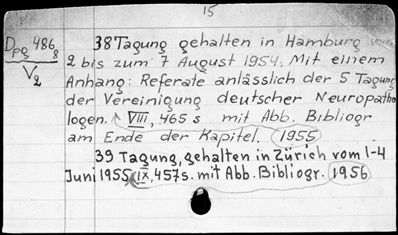 15
Dpg 486 8
V2
38 Tagung gehalten in Hamburg vom
2 bis zum 7 August 1954. Mit einem
Anhang: Referate anlässlich der 5 Tagung
der Vereinigung deutscher Neuropatho
logen. VIII, 465 s mit Abb. Bibliogr
am Ende der Kapitel. 1955
39 Tagung, gehalten in Zürich vom 1-4
Juni 1955. IX, 457s. mit Abb. Bibliogr. 1956